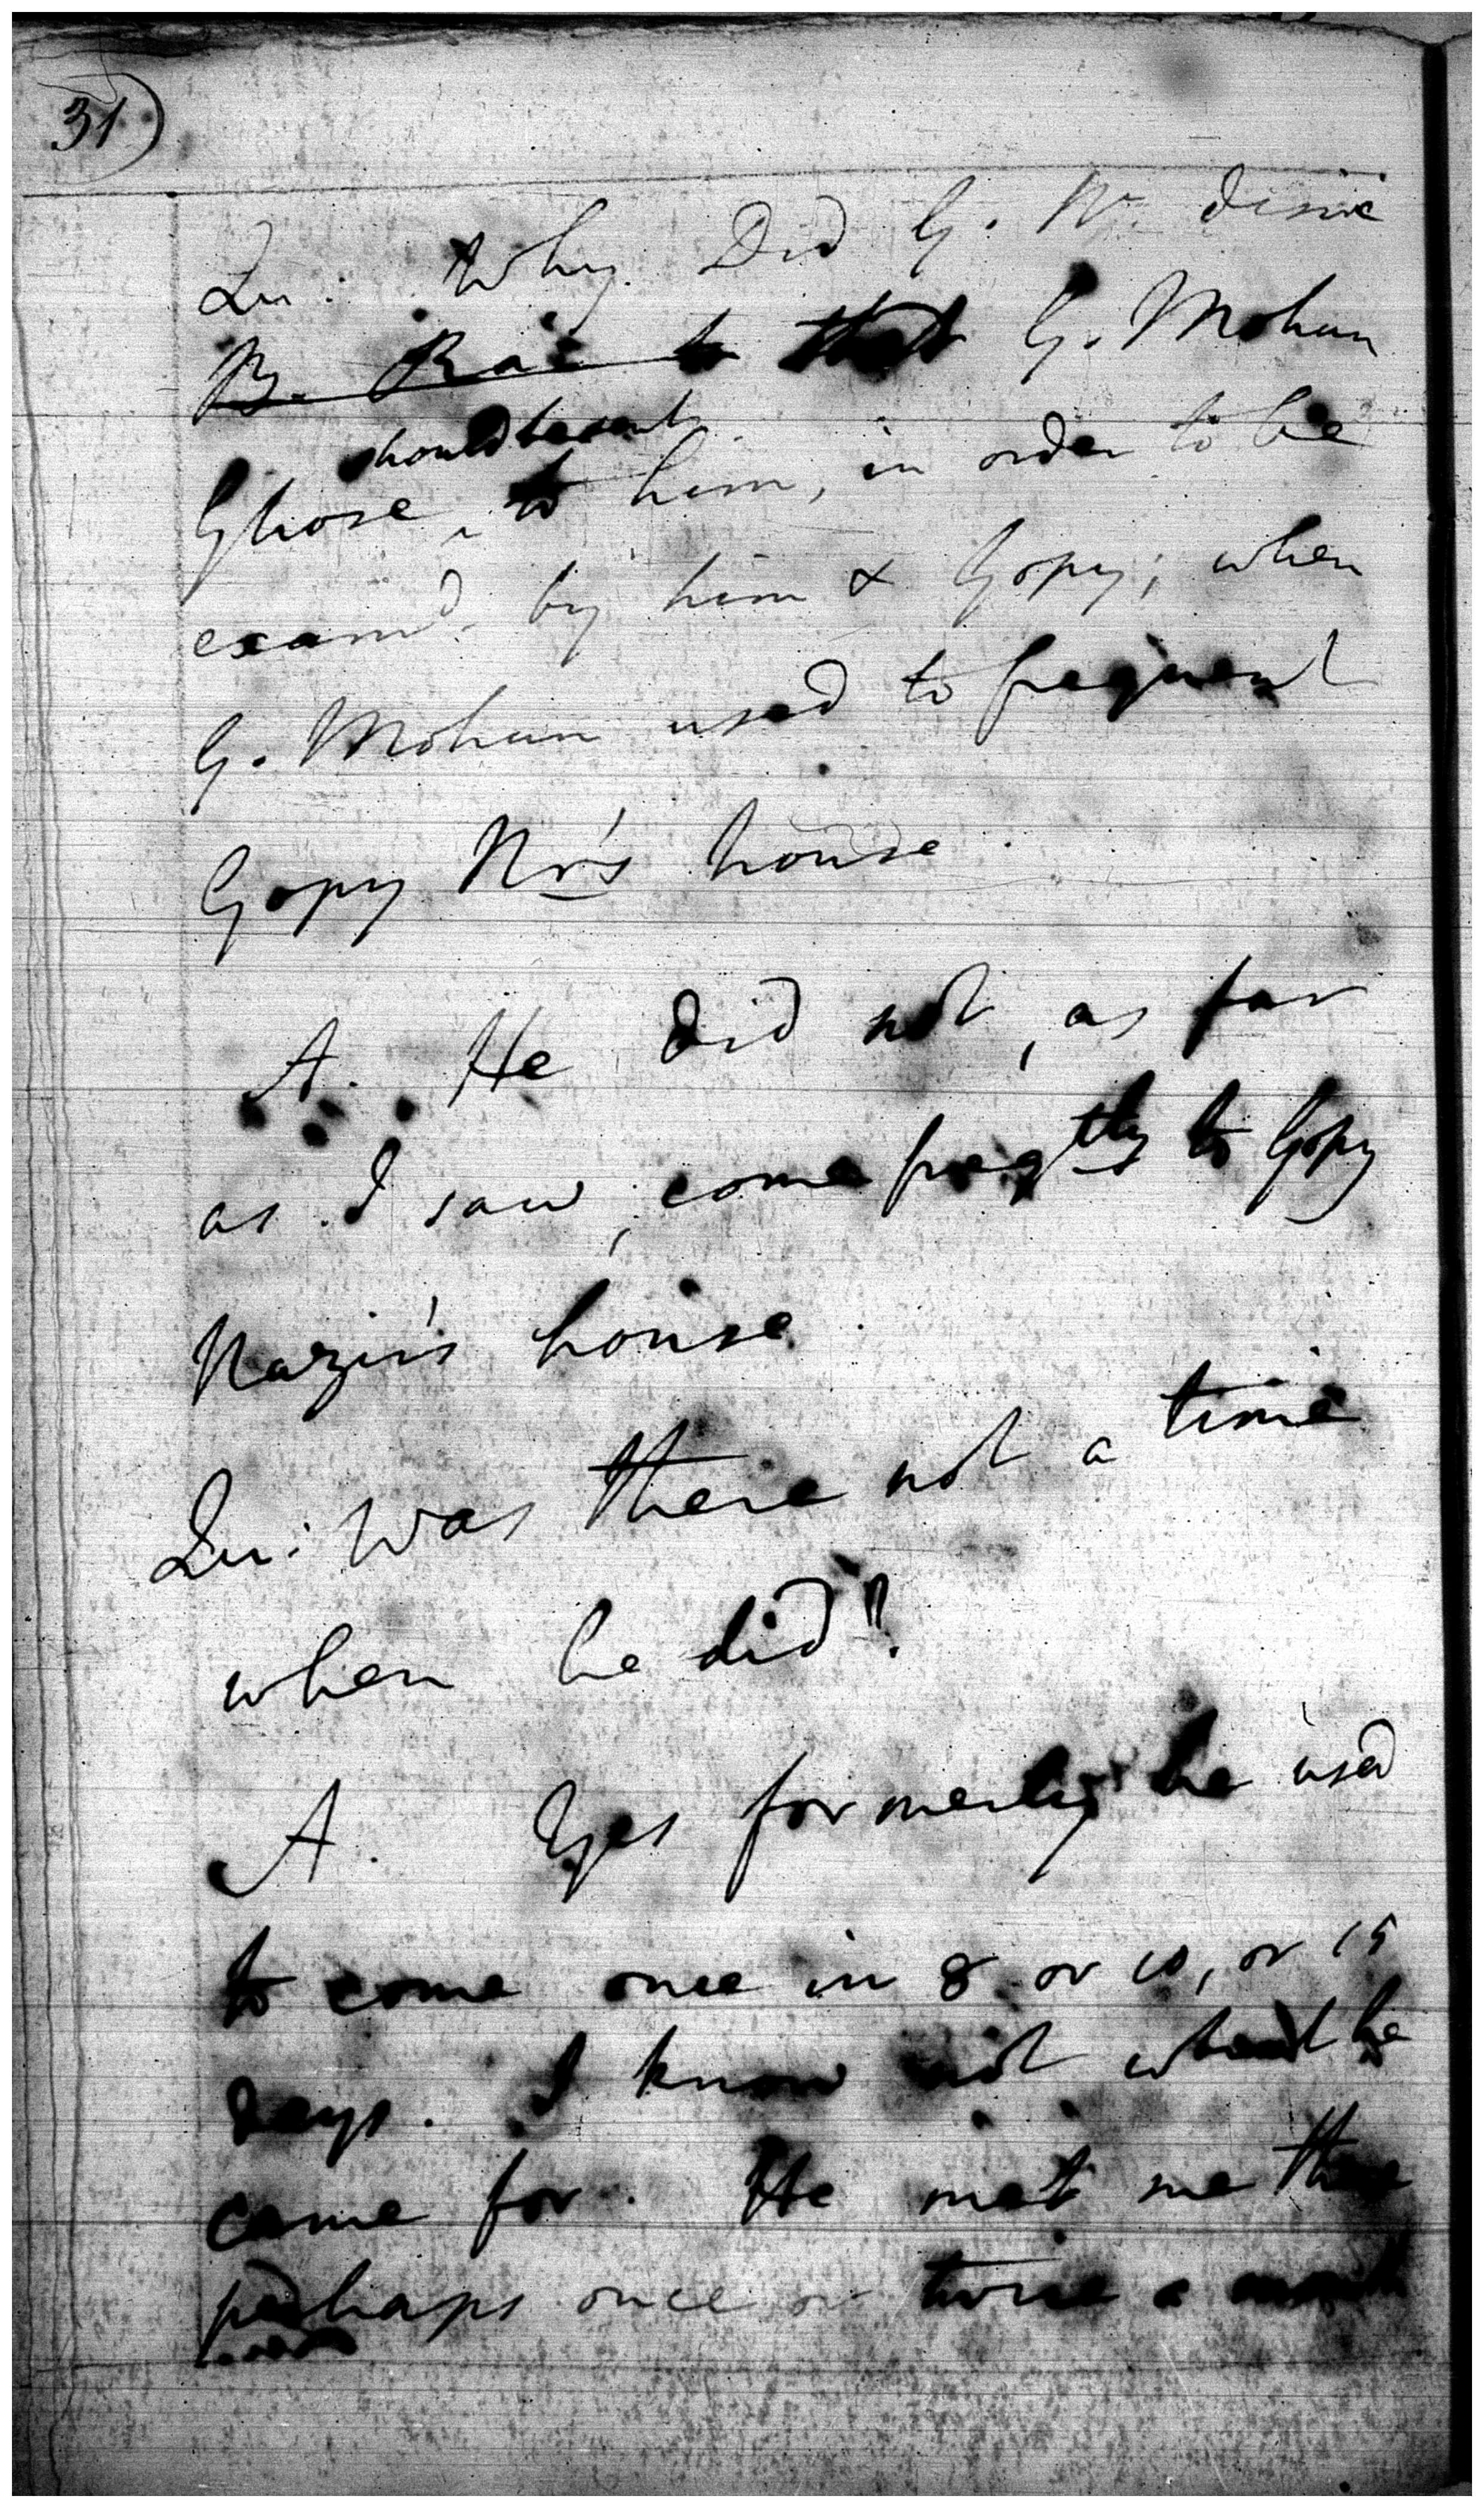 31)
Qu: Why Did G. Nr. desire
B. Rai to that G. Mohun
should be sent
Ghose ^ to him, in order to be
examd. by him & Gopy; when
G. Mohun used to frequent
Gopy Nr's house.
A. He did not, as far
as I saw, come freqtly to Gopy
Nazir's house.
Qu: Was there not a time
when he did?
A. Yes formerly he used
to come once in 8 or 10, or 15
days. I know not what he
came for. He met me there
perhaps once or twice a month